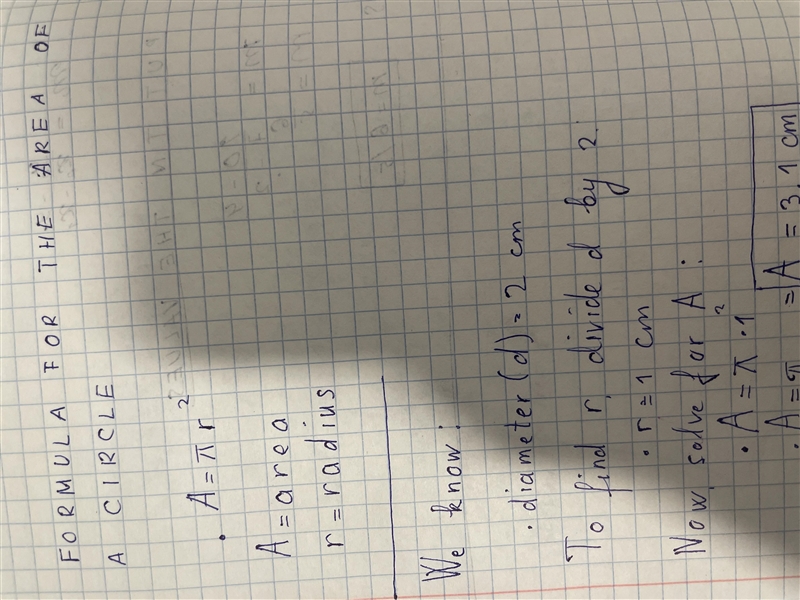 FORMULA FOR THE AREA OF
A CIRCLE
· A = πr²
A = area
r = radius
We know:
· diameter (d) = 2 cm
To find r, divide d by 2.
· r = 1 cm
Now, solve for A:
· A = π · 1²
· A = π = A = 3,1 cm